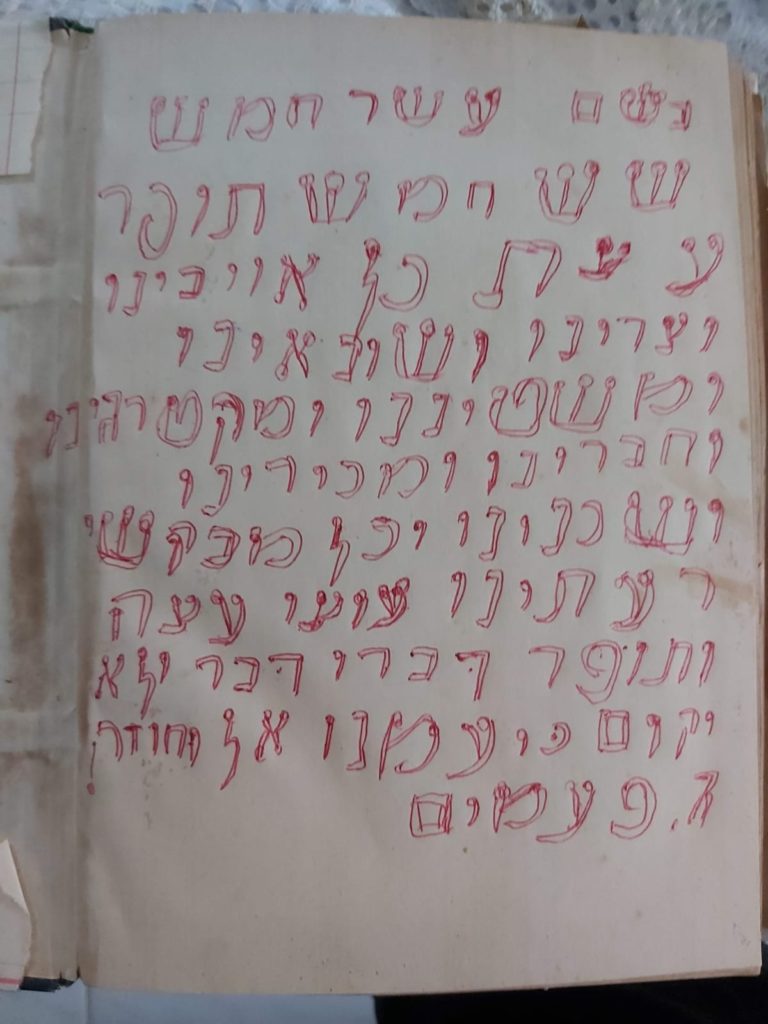 בשם עשר חמש
שש חמש תופר
עצת כל אוייבינו
וצרינו ושונאינו
ומשטיננו ומקטרגינו
וחברינו ומכירינו
ושכנינו וכל מבקשי
רעתינו עוצו עצה
ותופר דברו דבר ולא
יקום כי עמנו אל וחוזר
ז. פעמים